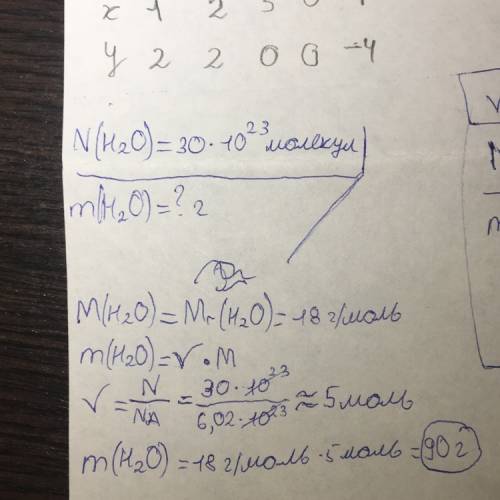 x 1 2
y 2 2 0 0 -4
N(H₂O)=30·10²³ молекул
m(H₂O)=? г
M(H₂O)=Mr(H₂O)=18 г/моль
m(H₂O)=V·M
V=N/NA=30·10²³/6,02·10²³≈5 моль
m(H₂O)=18 г/моль·5 моль=90 г